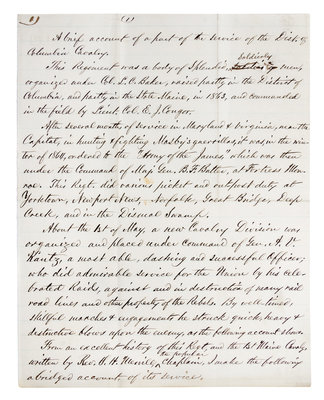 (1)
A brief account of a part of the service of the Dist. of
Columbia Cavalry.
This Regiment was a body of splendid, soldierly men,
organized under Col. L. C. Baker, raised partly in the District of
Columbia, and partly in the State Maine, in 1863, and commanded
in the field by Lieut. Col. E. J. Conger.
After several months of service in Maryland & Virginia, near the
Capital, in hunting & fighting Mosby's guerrillas, it was in the win-
ter of 1864, ordered to the "Army of the James" which was then
under the Command of Maj. Gen. B. F. Butler, at Fortress Mon-
roe. This Regt. did various picket and outpost duty at
Yorktown, Newport News, Norfolk, Great Bridge, Deep
Creek, and in the Dismal Swamp.
About the 1st of May, a new Cavalry Division was
organized and placed under command of Gen. A. V.
Kautz, a most able, dashing and successful Officer;
who did admirable service for the Union by his cele-
brated Raids, against and in destruction of many rail
road lines and other property of the Rebels. By well-timed,
skillful marches & engagements he struck quick, heavy &
destructive blows upon the enemy, as the following account shows.
From an excellent history of this Regt. and the 1st Maine Cavalry,
written by Rev. S. H. Merrill, the popular Chaplain, I make the following
abridged account of its service.